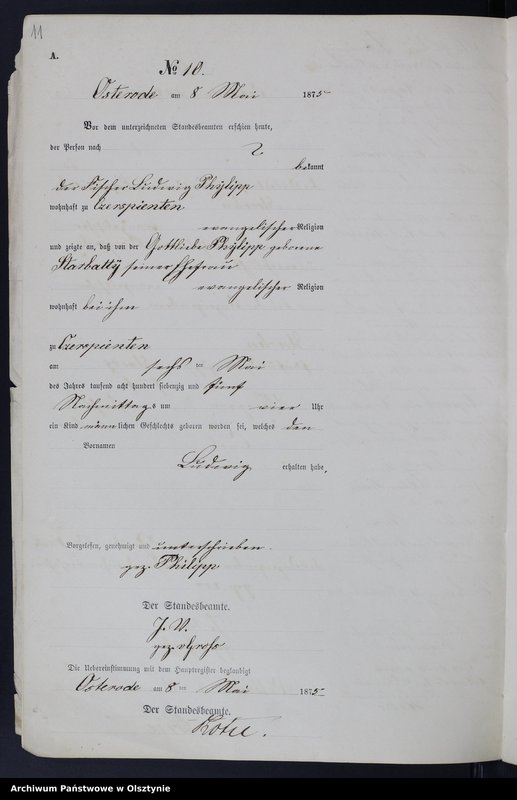 11
A.
No 10.
Osterode am 8 Mai 1875
Vor dem unterzeichneten Standesbeamten erschien heute,
der Person nach
bekannt
der Fischer Ludwig Philipp
wohnhaft zu Czerspienten
evangelischer Religion
und zeigte an, daß von der Gottliebe Philipp geborene
Starbatty seiner Ehefrau
evangelischer Religion
wohnhaft bei ihm
zu Czerspienten
am sechs ten Mai
des Jahres tausend acht hundert siebenzig und fünf
Nachmittags um vier Uhr
ein Kind männlichen Geschlechts geboren worden sei, welches den
Vornamen
Ludwig erhalten habe,
Vorgelesen, genehmigt und unterschrieben.
gez. Philipp
Der Standesbeamte.
J. V.
gez.
Die Uebereinstimmung mit dem Hauptregister beglaubigt
Osterode am 8 ten Mai 1875
Der Standesbeamte.
Archiwum Państwowe w Olsztynie